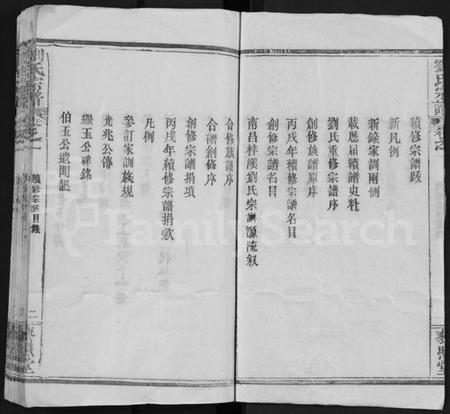 劉氏宗譜
續修宗譜跋
新凡例
新錄家訓兩則
載歷屆續譜史料
劉氏重修宗譜序
創修族譜原序
丙戌年續修宗譜名目
創修宗譜名目
南昌梓溪劉氏宗譜源流叙
合修族譜序
合譜創修序
創修宗譜捐項
丙戌年續修宗譜捐款
凡例
參訂家訓族規
光兆公傳
玉公碑銘
伯玉公遺聞誌
續修宗譜目錄
二
FamilySearch